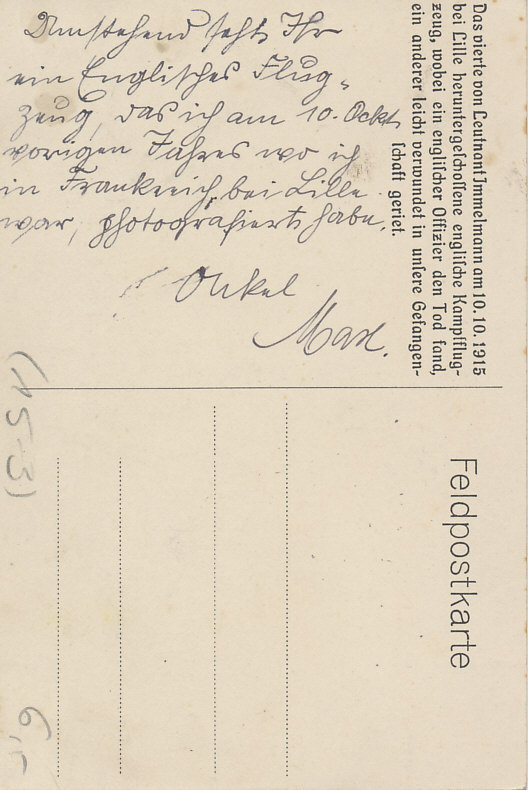 Das vierte von Leutnant Immelmann am 10. 10. 1915
bei Lille heruntergeschossene englische Kampfflug-
zeug, wobei ein englischer Offizier den Tod fand,
ein anderer leicht verwundet in unsere Gefangen-
schaft geriet.
Umstehend seht Ihr
ein Englisches Flug-
zeug, das ich am 10. Ockt.
vorigen Jahres wo ich
in Frankreich, bei Lille
war, photografiert habe.
Onkel
Max.
Feldpostkarte
(15-3)
6,-